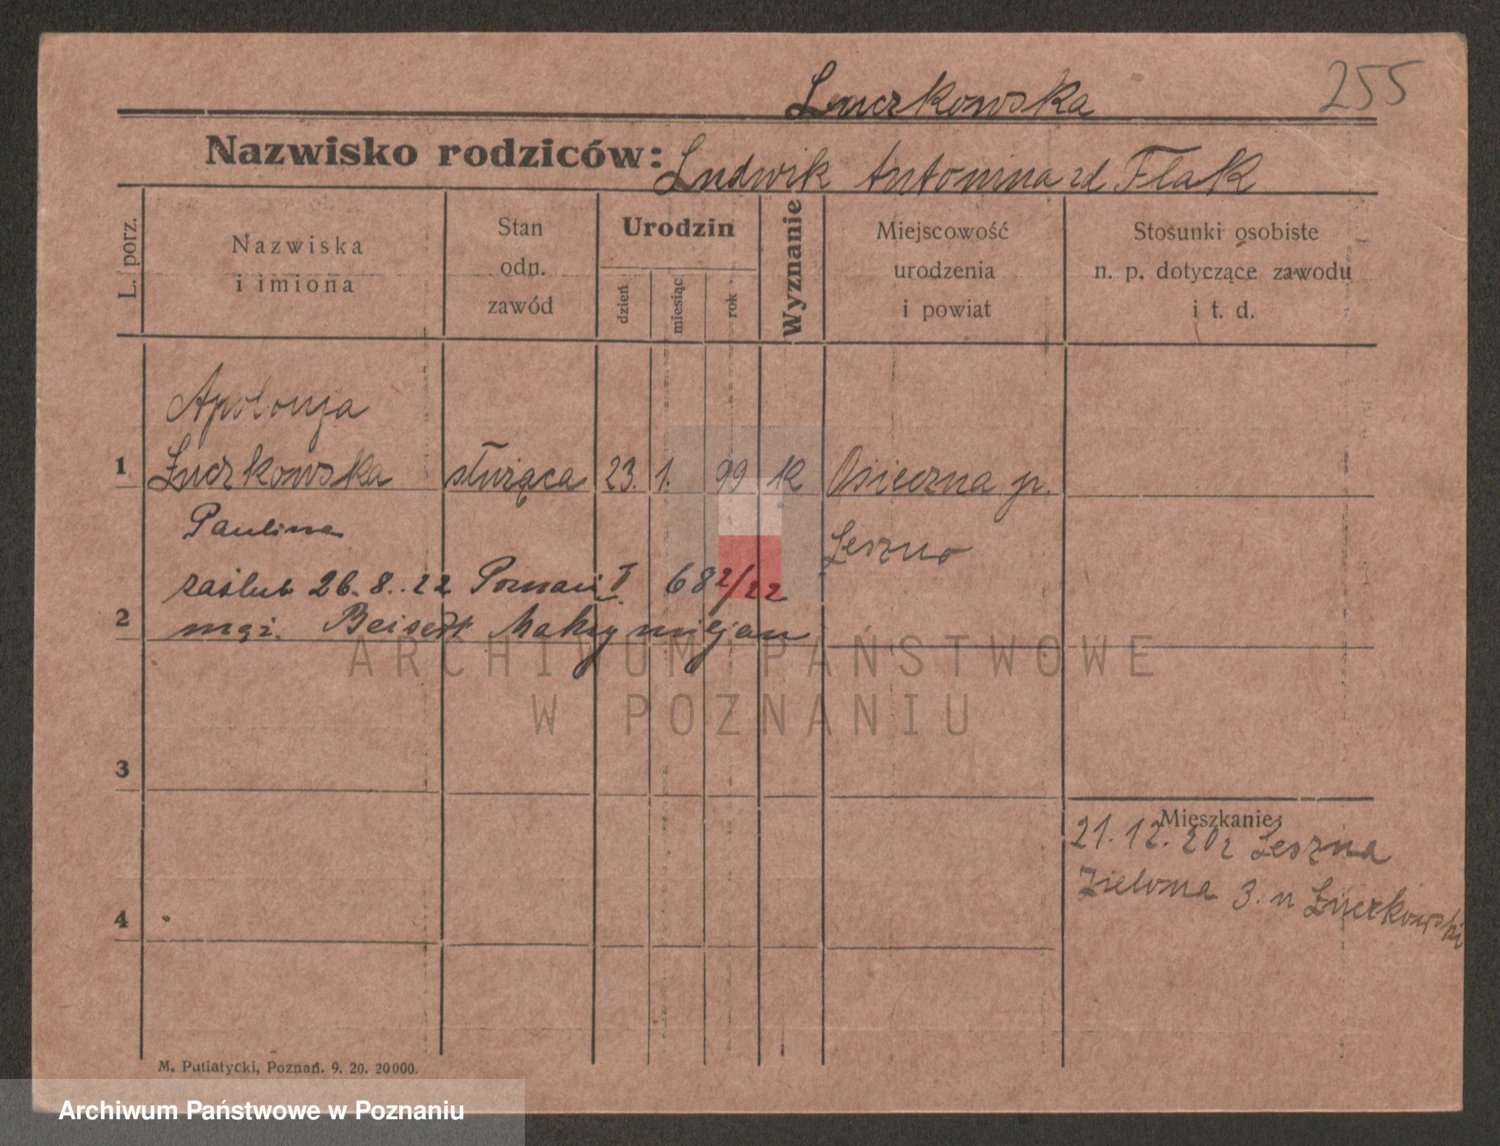 Łuczkowska
255
Nazwisko rodziców: Ludwik Antonina zd Flak
L. porz.
Nazwiska
i imiona
Stan
odn.
zawód
Urodzin
dzień
miesiąc
rok
Wyznanie
Miejscowość
urodzenia
i powiat
Stosunki osobiste
n. p. dotyczące zawodu
i t. d.
Apolonja
1 Łuczkowska służąca 23. 1. 99 K Osieczna p.
Paulina
Leszno
zaślub 26.8.22 Poznań I 682/22
2 Beisert Maksymiljan
ARCHIWUM PAŃSTWOWE
W POZNANIU
3
Mieszkanie:
21.12.20 z Leszna
4 Zielona 3. u Łuczkowski
M. Putiatycki, Poznań. 9. 20. 20000.
Archiwum Państwowe w Poznaniu